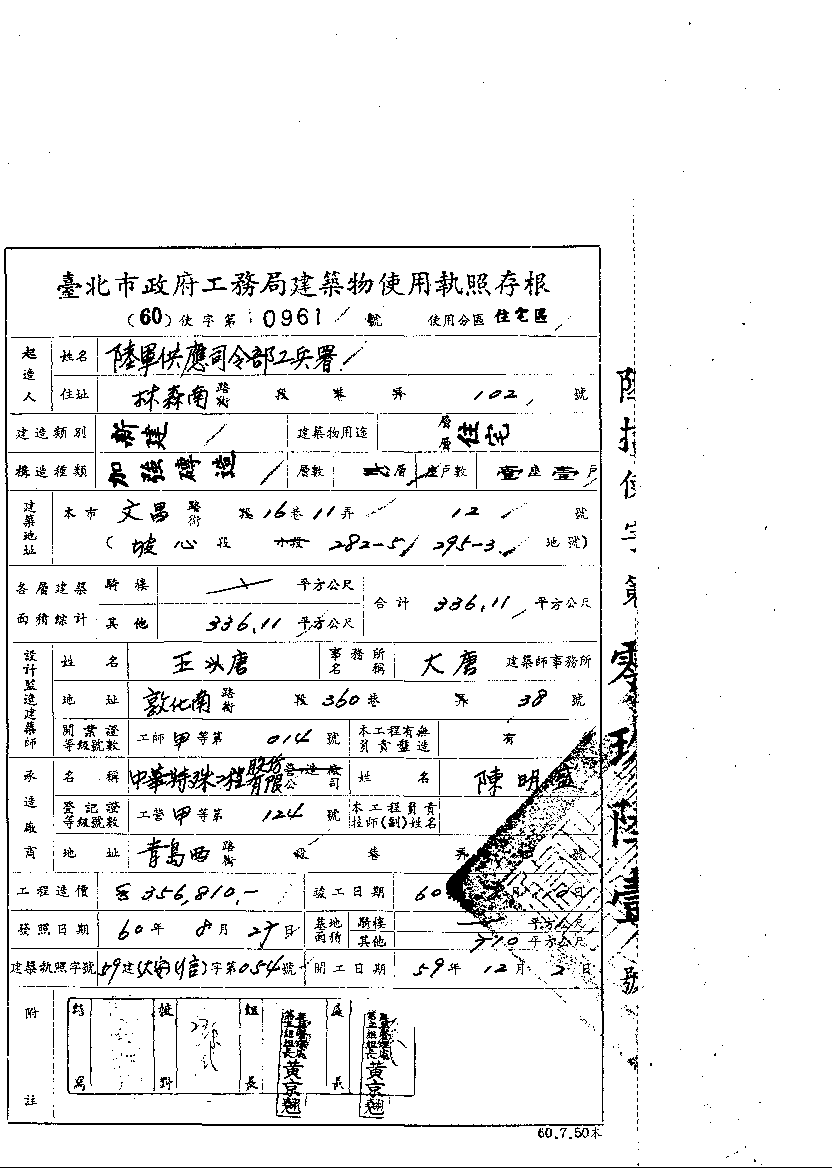 臺北市政府工務局建築物使用執照存根
(60)使字第0961號 使用分區 住宅區
起造人 姓名 陸軍供應司令部工兵署
住址 林森南路街 段 巷 弄 102 號
建造類別 新建 建築物用途 層層 住宅
構造種類 加強磚造 層數 貳層 座戶數 壹座壹戶
建築地址 本市 文昌路街 段16巷11弄 12 號
(坡心段 小段 282-5 295-3 地號)
各層建築面積綜計 騎樓 平方公尺 合計 336.11 平方公尺
其他 336.11 平方公尺
設計監造建築師 姓名 王 唐 事務所名稱 大唐 建築師事務所
地址 敦化南路街 段360巷 弄 38 號
開業證等級號數 工師甲等第 014 號 本工程有無負責監造 有
承造廠商 名稱 中華特殊工程股份有限公司 營造廠 姓名 陳明
登記證等級號數 工營甲等第 124 號 本工程負責技師(副)姓名
地址 青島西路街 段 巷 弄 號
工程造價 356,810.- 竣工日期 60 月 日
發照日期 60年 8月 27日 基地面積 騎樓 平方公尺
其他 310 平方公尺
建築執照字號 59建(大安)(信)字第054號 開工日期 59年 12月 2日
附註 核對 組長 處長
第五組組長 黃京翹 第五組組長 黃京翹
60.7.50本
使字第零玖陸壹號